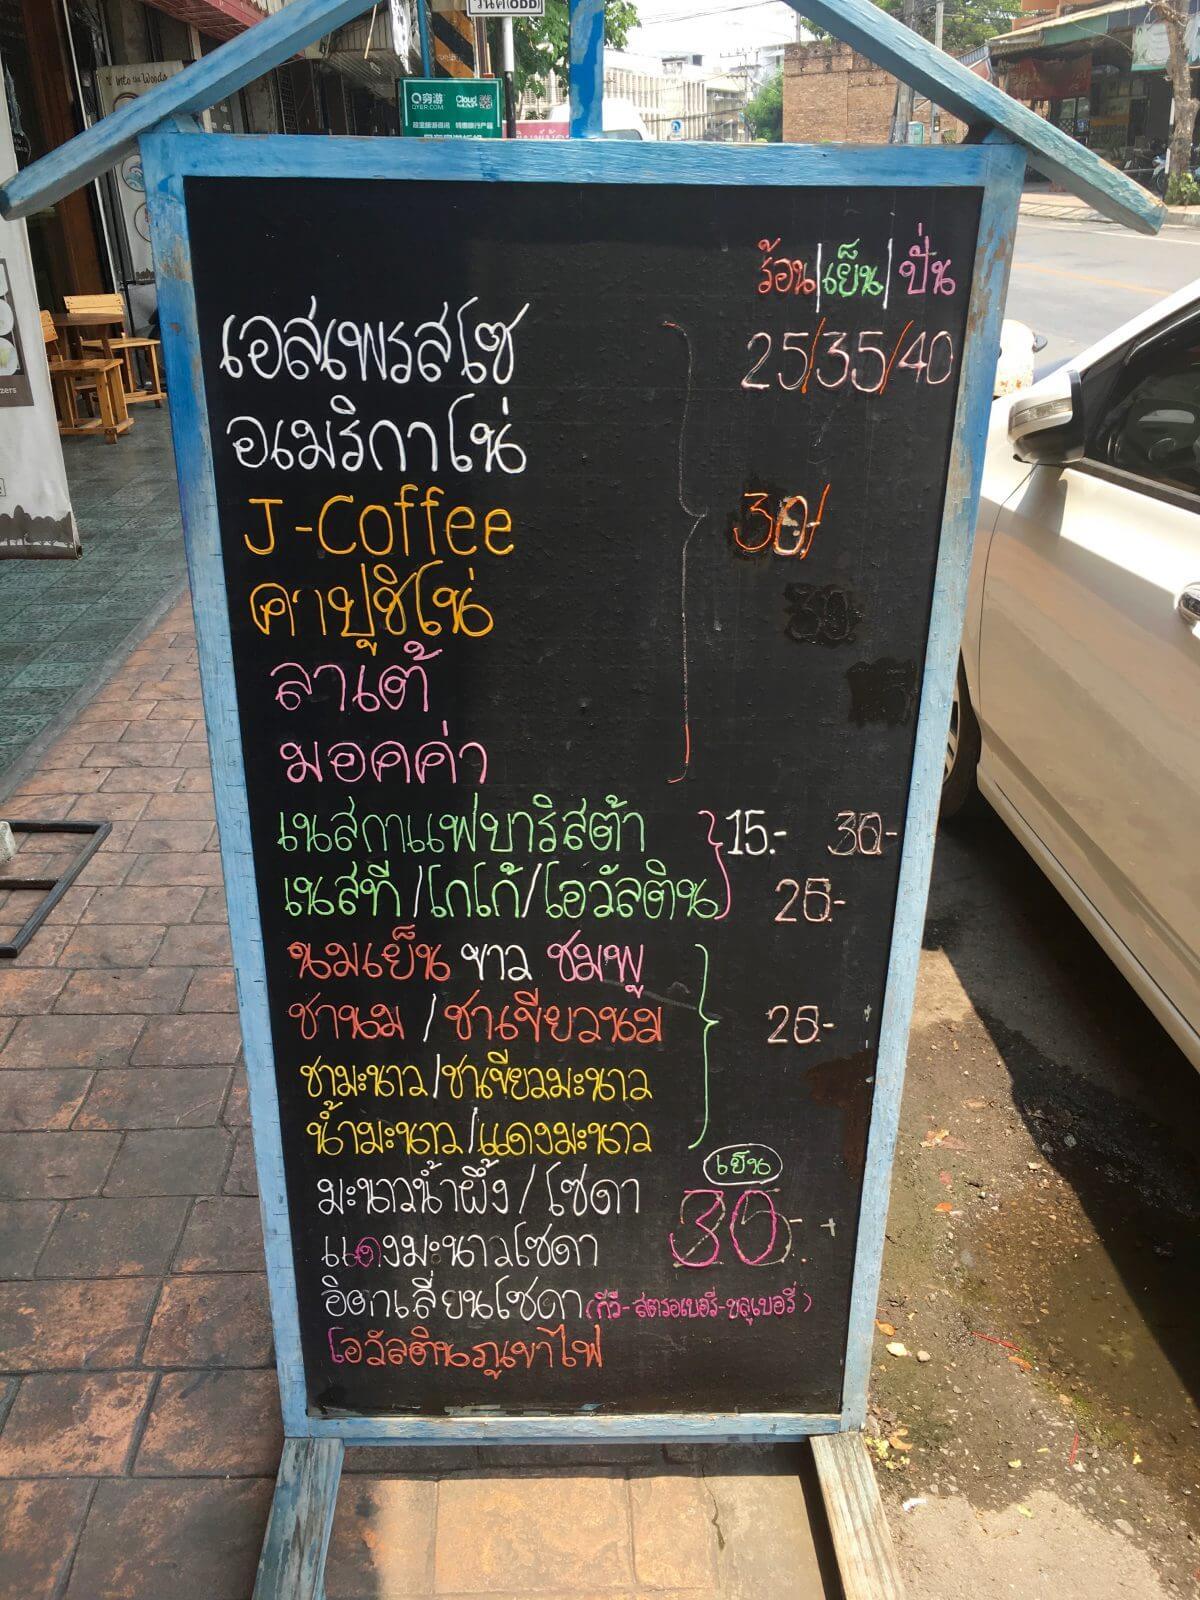 Into the Woods
穷游
QYER.COM
Cloud
ร้อน|เย็น|ปั่น
เอสเพรสโซ 25/35/40
อเมริกาโน่
J-Coffee 30/
คาปูชิโน่
ลาเต้
มอคค่า
เนสกาแฟบาริสต้า 15.- 30-
เนสที/โกโก้/โอวัลติน 25.-
นมเย็น ขาว ชมพู
ชานม/ชาเขียวนม 25-
ชามะนาว/ชาเขียวมะนาว
น้ำมะนาว/แดงมะนาว
เย็น
มะนาวน้ำผึ้ง/โซดา
แดงมะนาวโซดา 30.-
อิตาเลี่ยนโซดา (กีวี-สตรอเบอรี่-บลูเบอรี่)
โอวัลตินภูเขาไฟ